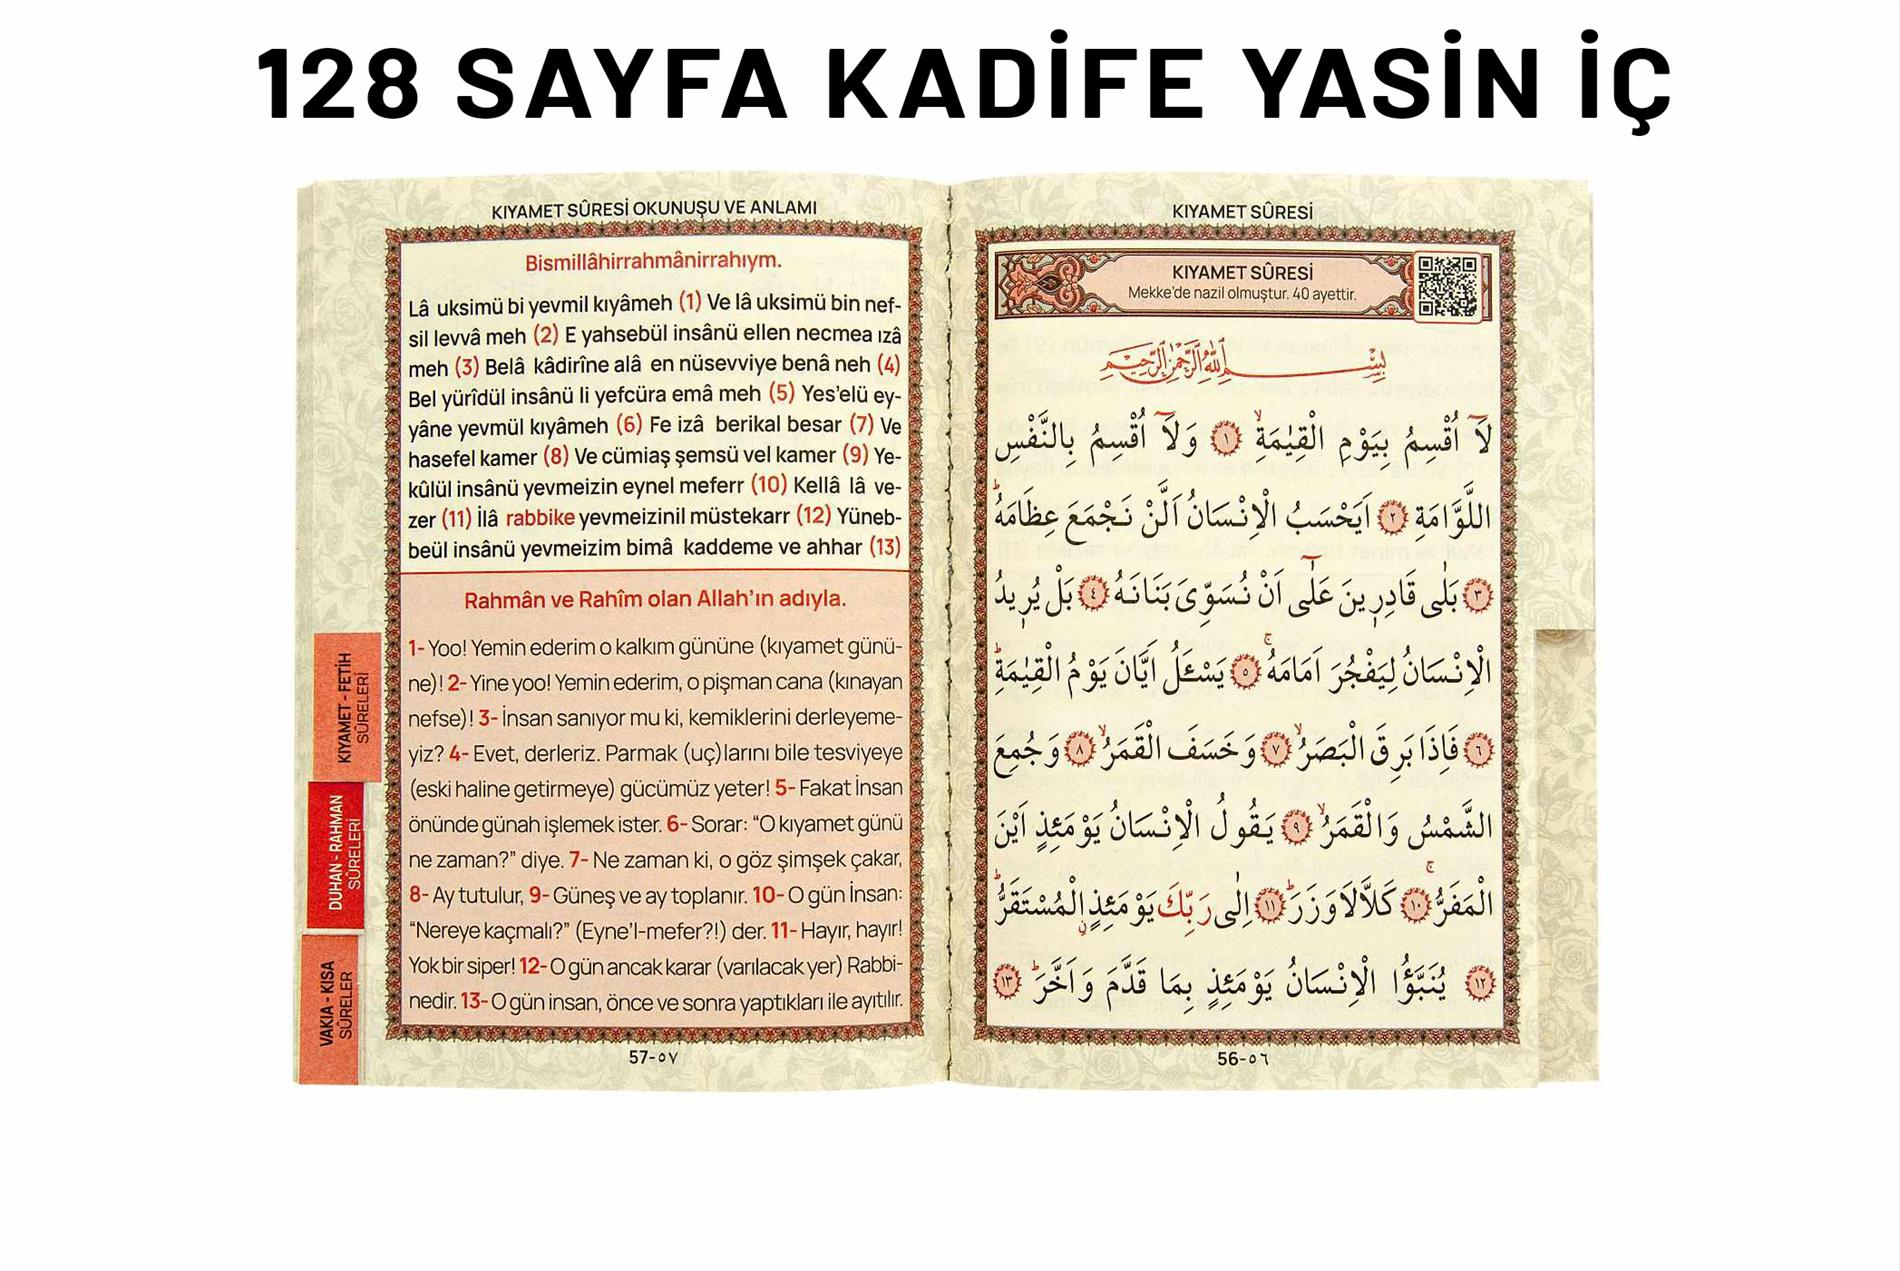 128 SAYFA KADİFE YASİN İÇ
KIYAMET SÛRESİ OKUNUŞU VE ANLAMI
Bismillâhirrahmânirrahıym.
Lâ uksimü bi yevmil kıyâmeh (1) Ve lâ uksimü bin nef-
sil levvâ meh (2) E yahsebül insânü ellen necmea ızâ
meh (3) Belâ kâdirîne alâ en nüsevviye benâ neh (4)
Bel yürîdül insânü li yefcüra emâ meh (5) Yes'elü ey-
yâne yevmül kıyâmeh (6) Fe izâ berikal besar (7) Ve
hasefel kamer (8) Ve cümiaş şemsü vel kamer (9) Ye-
kûlül insânü yevmeizin eynel meferr (10) Kellâ lâ ve-
zer (11) İlâ rabbike yevmeizinil müstekarr (12) Yüneb-
beül insânü yevmeizim bimâ kaddeme ve ahhar (13)
Rahmân ve Rahîm olan Allah'ın adıyla.
1- Yoo! Yemin ederim o kalkım gününe (kıyamet günü-
ne)! 2- Yine yoo! Yemin ederim, o pişman cana (kınayan
nefse)! 3- İnsan sanıyor mu ki, kemiklerini derleyeme-
yiz? 4- Evet, derleriz. Parmak (uç)larını bile tesviyeye
(eski haline getirmeye) gücümüz yeter! 5- Fakat İnsan
önünde günah işlemek ister. 6- Sorar: “O kıyamet günü
ne zaman?” diye. 7- Ne zaman ki, o göz şimşek çakar,
8- Ay tutulur, 9- Güneş ve ay toplanır. 10- O gün İnsan:
“Nereye kaçmalı?” (Eyne'l-mefer?!) der. 11- Hayır, hayır!
Yok bir siper! 12- O gün ancak karar (varılacak yer) Rabbi-
nedir. 13- O gün insan, önce ve sonra yaptıkları ile ayıtılır.
57-٥٧
KIYAMET - FETİH
SÛRELERİ
DUHAN - RAHMAN
SÛRELERİ
VAKIA - KISA
SÛRELER
KIYAMET SÛRESİ
KIYAMET SÛRESİ
Mekke'de nazil olmuştur. 40 ayettir.
بِسْمِ اللّٰهِ الرَّحْمٰنِ الرَّحِيمِ
لَٓا اُقْسِمُ بِيَوْمِ الْقِيٰمَةِۙ ١ وَلَٓا اُقْسِمُ بِالنَّفْسِ
اللَّوَّامَةِ ٢ اَيَحْسَبُ الْاِنْسَانُ اَلَّنْ نَجْمَعَ عِظَامَهُۜ
٣ بَلٰى قَادِر۪ينَ عَلٰٓى اَنْ نُسَوِّيَ بَنَانَهُ ٤ بَلْ يُر۪يدُ
الْاِنْسَانُ لِيَفْجُرَ اَمَامَهُۚ ٥ يَسْـَٔلُ اَيَّانَ يَوْمُ الْقِيٰمَةِۜ
٦ فَاِذَا بَرِقَ الْبَصَرُۙ ٧ وَخَسَفَ الْقَمَرُۙ ٨ وَجُمِعَ
الشَّمْسُ وَالْقَمَرُۙ ٩ يَقُولُ الْاِنْسَانُ يَوْمَئِذٍ اَيْنَ
الْمَفَرُّۚ ١٠ كَلَّا لَا وَزَرَۜ ١١ اِلٰى رَبِّكَ يَوْمَئِذٍۨ الْمُسْتَقَرُّۜ
١٢ يُنَبَّؤُا الْاِنْسَانُ يَوْمَئِذٍ بِمَا قَدَّمَ وَاَخَّرَۜ ١٣
56-٥٦